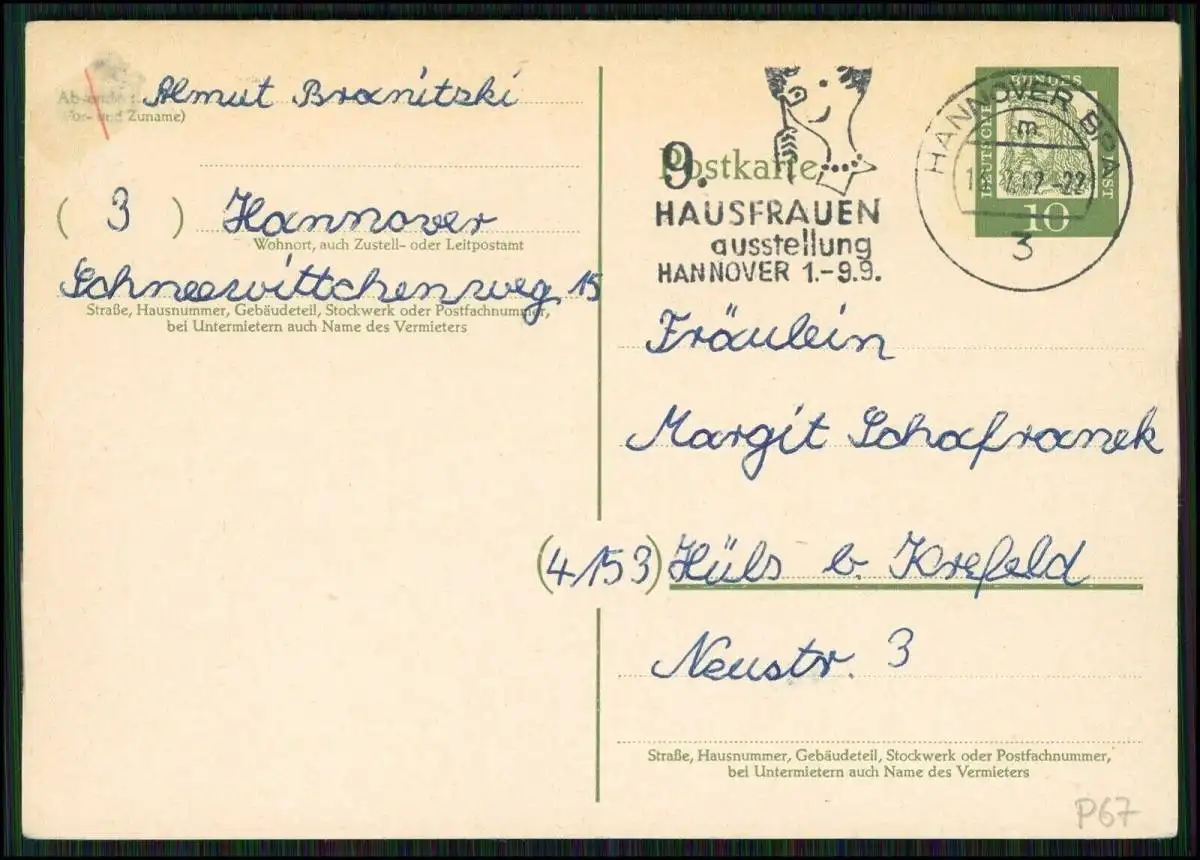 Almut Branitzki
Absender:
(Vor- und Zuname)
( 3 ) Hannover
Wohnort, auch Zustell- oder Leitpostamt
Schneewittchenweg 15
Straße, Hausnummer, Gebäudeteil, Stockwerk oder Postfachnummer,
bei Untermietern auch Name des Vermieters
Postkarte
9.
HAUSFRAUEN
ausstellung
HANNOVER 1.-9.9.
HANNOVER
m
3
DEUTSCHE
BUNDES
10
Fräulein
Margit Schafranek
(4153) Hüls b. Krefeld
Neustr. 3
Straße, Hausnummer, Gebäudeteil, Stockwerk oder Postfachnummer,
bei Untermietern auch Name des Vermieters
P67